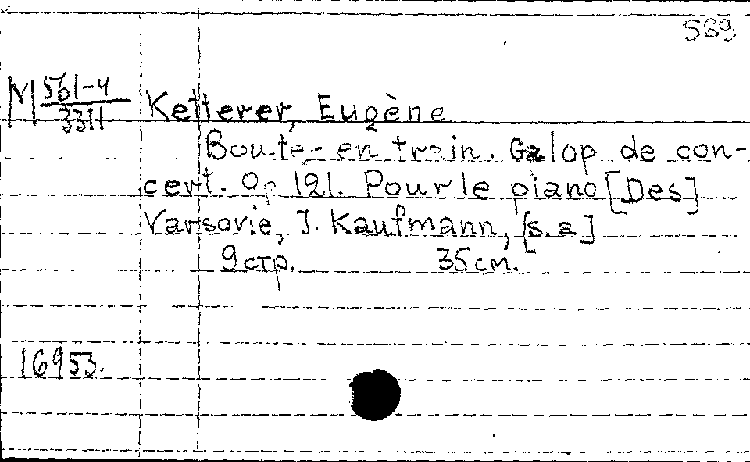 589
M 561-4
3311
Ketterer, Eugène
Boute-en train. Galop de con-
cert. Op 121. Pour le piano [Des]
Varsovie, J. Kaufmann, [s.a]
9 стр. 35 см.
16953.